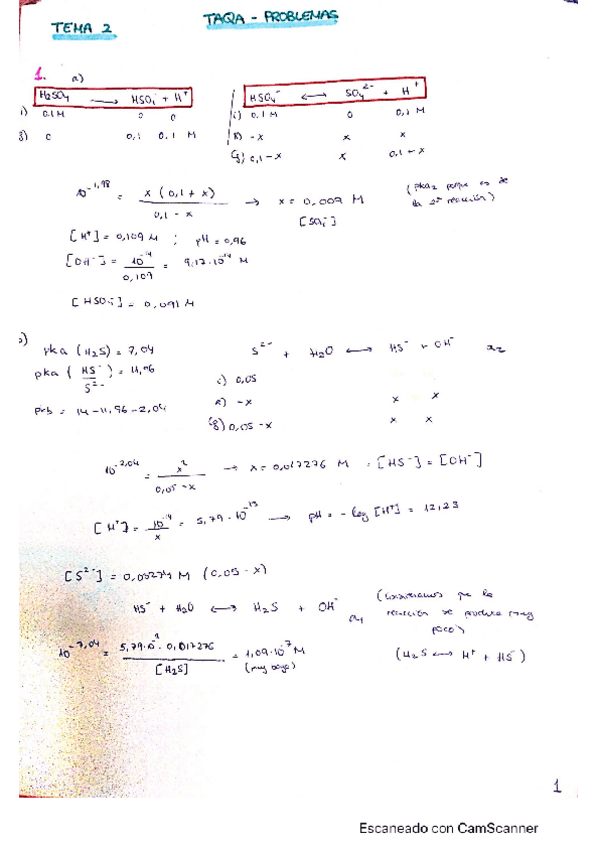 TAQA - PROBLEMAS
TEMA 2
1. a)
H₂SO₄ → HSO₄⁻ + H⁺
i) 0,1 M 0 0
f) 0 0,1 0,1 M
HSO₄⁻ ↔ SO₄²⁻ + H⁺
i) 0,1 M 0 0,1 M
R) -x x x
(f) 0,1-x x 0,1+x
10^-1,98 = x (0,1 + x) / 0,1 - x → x = 0,009 M
[SO₄²⁻]
(pka₂ porque es de la 2ª reacción)
[H⁺] = 0,109 M ; pH = 0,96
[OH⁻] = 10^-14 / 0,109 = 9,17·10^-14 M
[HSO₄⁻] = 0,091 M
b)
pka (H₂S) = 7,04
pka (HS⁻ / S²⁻) = 11,96
pkb = 14-11,96 = 2,04
S²⁻ + H₂O ↔ HS⁻ + OH⁻ a₂
i) 0,05
R) -x x x
(f) 0,05-x x x
10^-2,04 = x² / 0,05-x → x = 0,017276 M = [HS⁻] = [OH⁻]
[H⁺] = 10^-14 / x = 5,79·10^-13 → pH = -log [H⁺] = 12,23
[S²⁻] = 0,00274 M (0,05-x)
HS⁻ + H₂O ↔ H₂S + OH⁻ a₁
(Consideramos que la reacción se produce muy poco)
10^-7,04 = 5,79·10 · 0,017276 / [H₂S] = 1,09·10^-7 M
(muy bajo)
(H₂S ↔ H⁺ + HS⁻)
1
Escaneado con CamScanner